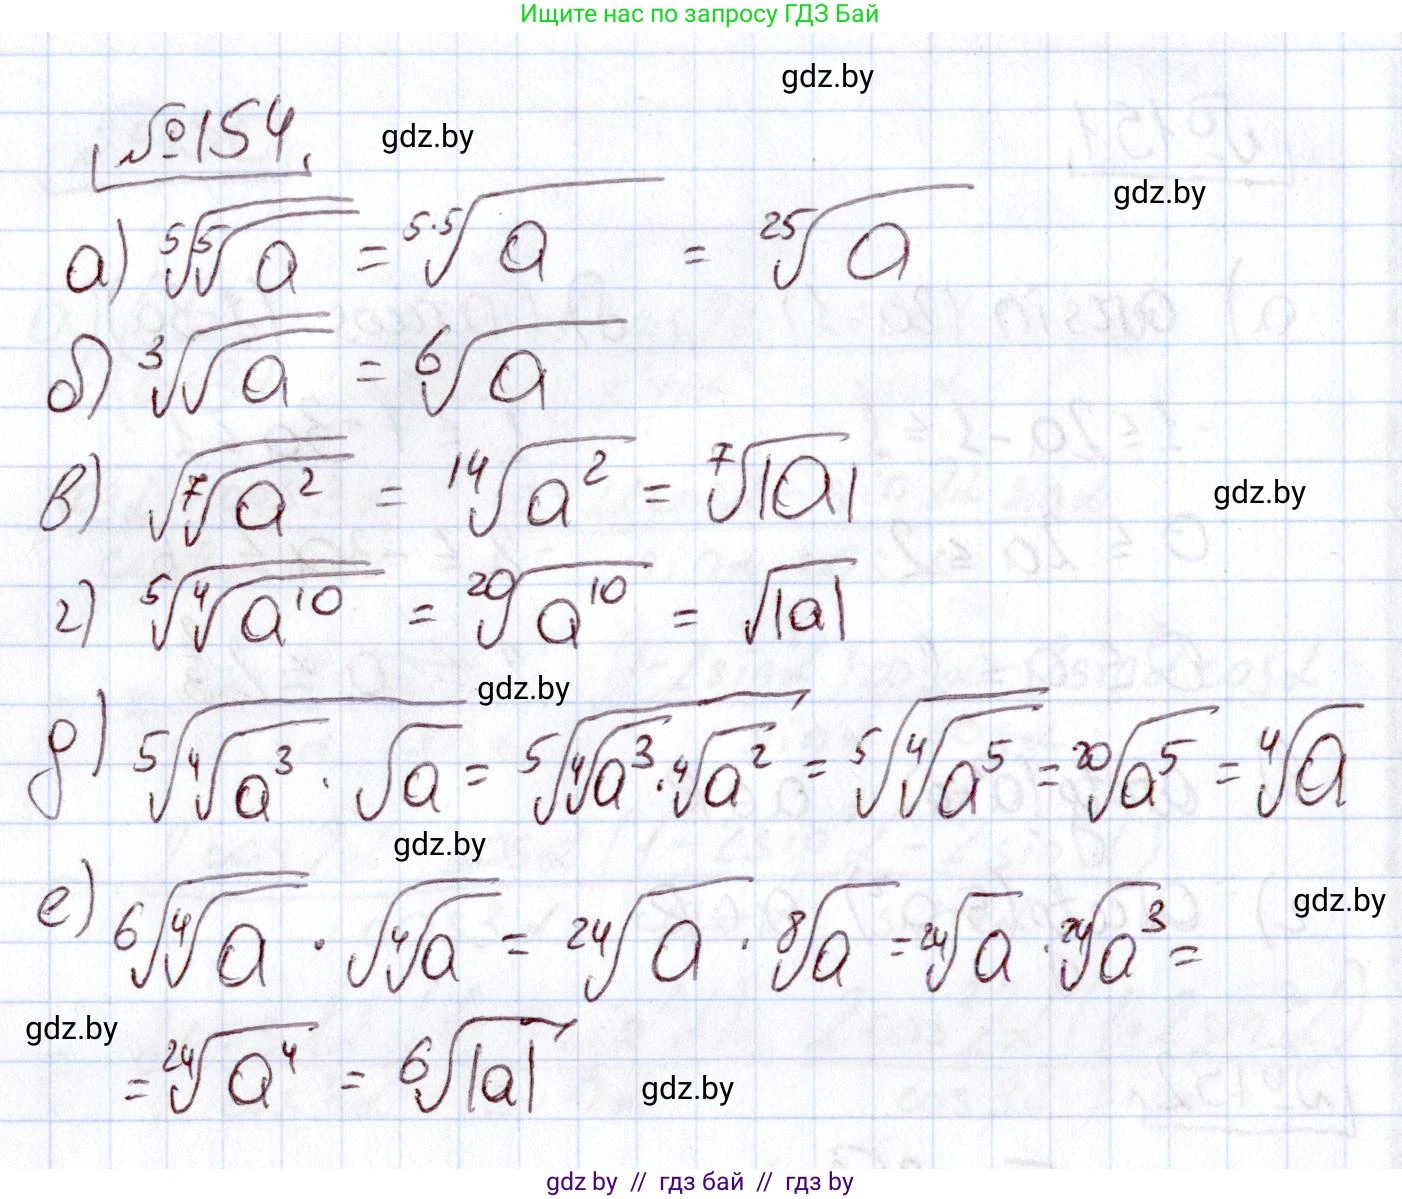 Ищите нас по запросу ГДЗ Бай
gdz.by
№154
gdz.by
gdz.by
а) ⁵√(⁵√a) = ⁵·⁵√a = ²⁵√a
б) ³√(√a) = ⁶√a
в) √(⁷√a²) = ¹⁴√a² = ⁷√|a|
gdz.by
г) ⁵√(⁴√a¹⁰) = ²⁰√a¹⁰ = √|a|
gdz.by
д) ⁵√(⁴√a³ · √a) = ⁵√(⁴√a³ · ⁴√a²) = ⁵√(⁴√a⁵) = ²⁰√a⁵ = ⁴√a
gdz.by
е) ⁶√(⁴√a) · √(⁴√a) = ²⁴√a · ⁸√a = ²⁴√a · ²⁴√a³ =
gdz.by
gdz.by
= ²⁴√a⁴ = ⁶√|a|
gdz.by
gdz by // гдз бай // гдз by